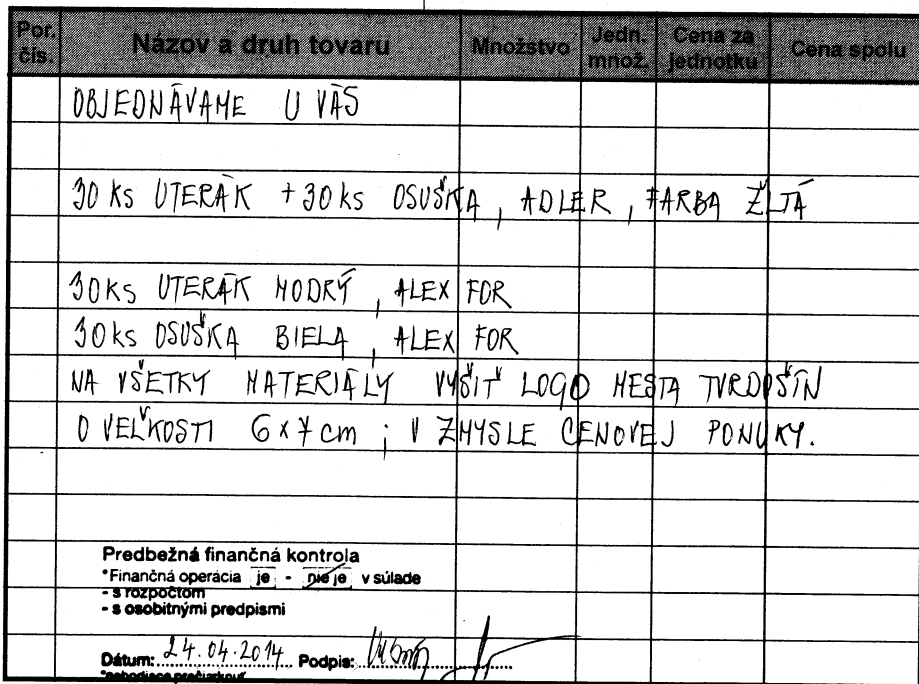 Por. čís. Názov a druh tovaru Množstvo Jedn. množ. Cena za jednotku Cena spolu
OBJEDNÁVAME U VÁS
30 ks UTERÁK + 30 ks OSUŠKA, ADLER, FARBA ŽLTÁ
30 ks UTERÁK MODRÝ, ALEX FOR
30 ks OSUŠKA BIELA, ALEX FOR
NA VŠETKY MATERIÁLY VYŠIŤ LOGO MESTA TVRDOŠÍN
O VEĽKOSTI 6 x 7 cm ; V ZMYSLE CENOVEJ PONUKY.
Predbežná finančná kontrola
*Finančná operácia je - nie je v súlade
- s rozpočtom
- s osobitnými predpismi
Dátum: 24.04.2014 Podpis:
*nehodiace prečiarknuť